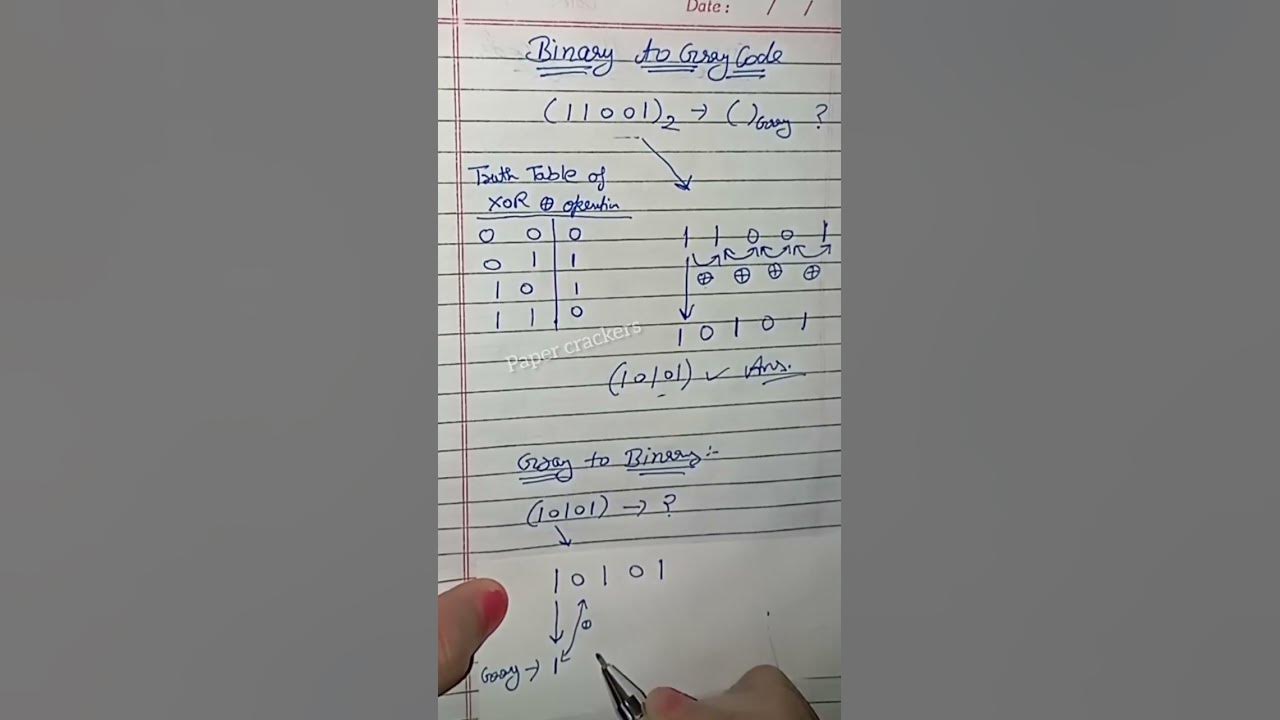 Date: / /
Binary to Gray Code
(11001)2 → ( )Gray ?
Truth Table of
XOR ⊕ operation
0 0 0
0 1 1
1 0 1
1 1 0
1 1 0 0 1
⊕ ⊕ ⊕ ⊕
1 0 1 0 1
Paper crackers
(10101) ✓ Ans.
Gray to Binary:-
(10101) → ?
1 0 1 0 1
⊕
Gray → 1